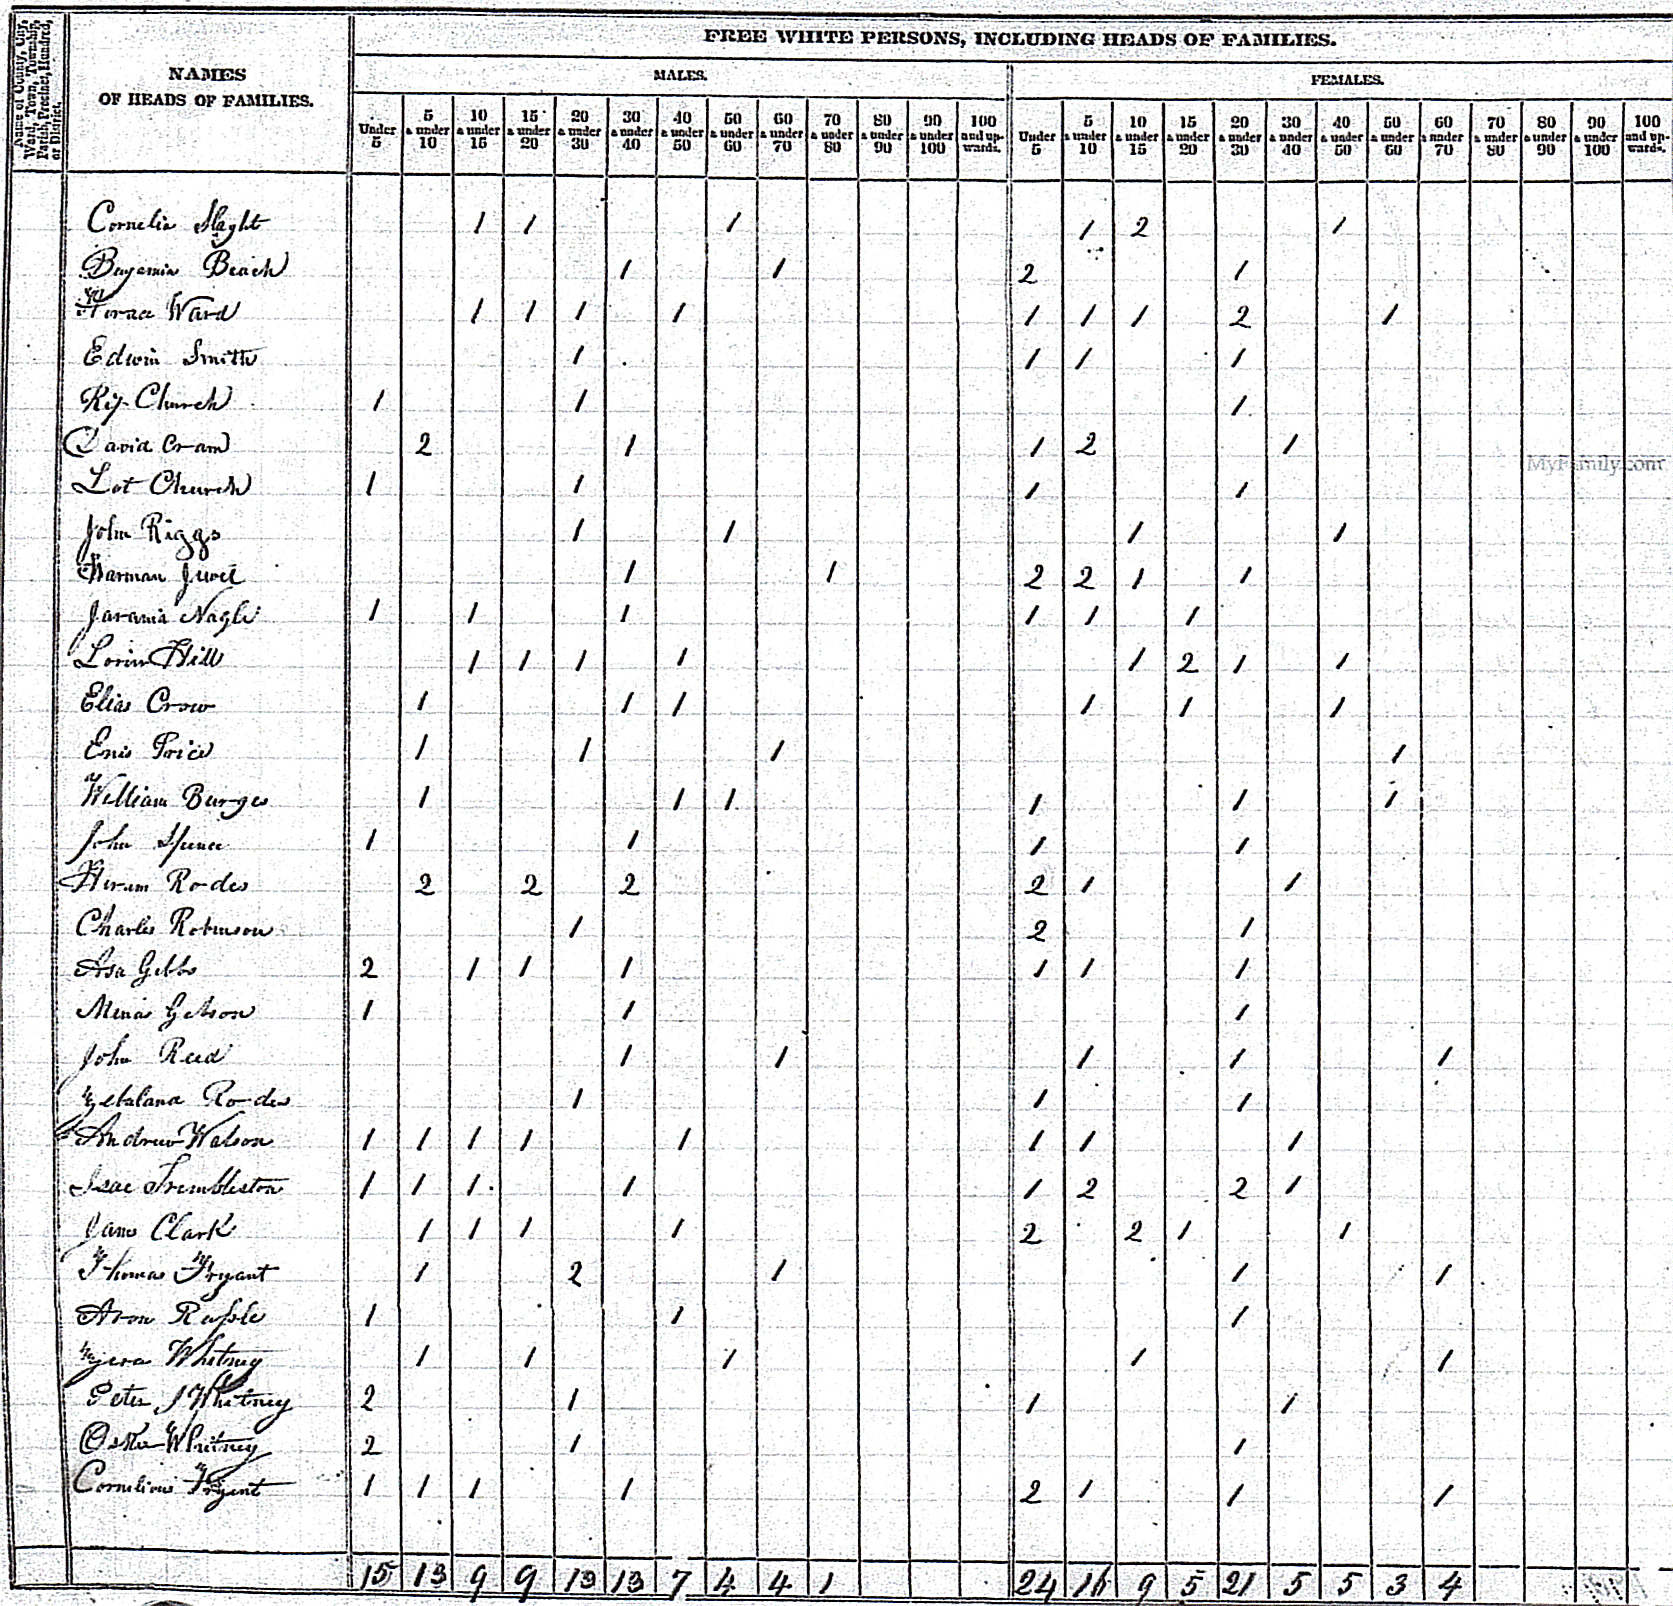 FREE WHITE PERSONS, INCLUDING HEADS OF FAMILIES.
Name of County, City, Ward, Town, Township, Parish, Precinct, Hundred, or District.
NAMES OF HEADS OF FAMILIES.
MALES. FEMALES.
Under 5 | 5 & under 10 | 10 & under 15 | 15 & under 20 | 20 & under 30 | 30 & under 40 | 40 & under 50 | 50 & under 60 | 60 & under 70 | 70 & under 80 | 80 & under 90 | 90 & under 100 | 100 and upwards. | Under 5 | 5 & under 10 | 10 & under 15 | 15 & under 20 | 20 & under 30 | 30 & under 40 | 40 & under 50 | 50 & under 60 | 60 & under 70 | 70 & under 80 | 80 & under 90 | 90 & under 100 | 100 and upwards.
Cornelia Slaght 1 1 1 1 2 1
Benjamin Beach 1 1 2 1
Horace Ward 1 1 1 1 1 1 1 2 1
Edwin Smith 1 1 1 1
Church 1 1 1
David Cram 2 1 1 2 1
Lot Church 1 1 1 1
John Riggs 1 1 1 1
Harman 1 1 2 2 1 1
Nagle 1 1 1 1 1 1
Lorin Hill 1 1 1 1 1 2 1 1
Elias Crow 1 1 1 1 1 1
Enis Price 1 1 1 1
William Burges 1 1 1 1 1 1
John Spence 1 1 1 1
Hiram Rodes 2 2 2 2 1 1
Charles Robinson 1 2 1
Asa Gibbs 2 1 1 1 1 1 1
1 1 1
John Reed 1 1 1 1 1
Rodes 1 1 1
Andrew Watson 1 1 1 1 1 1 1 1
Isac Trembleston 1 1 1 1 1 2 2 1
James Clark 1 1 1 1 2 2 1 1
Thomas Fryant 1 2 1 1 1
Aron 1 1 1
Whitney 1 1 1 1 1
Peter J Whitney 2 1 1 1
Whitney 2 1 1
Cornelious Fryent 1 1 1 1 2 1 1 1
15 13 9 9 13 13 7 4 4 1 24 9 5 21 5 5 3 4
MyFamily.com